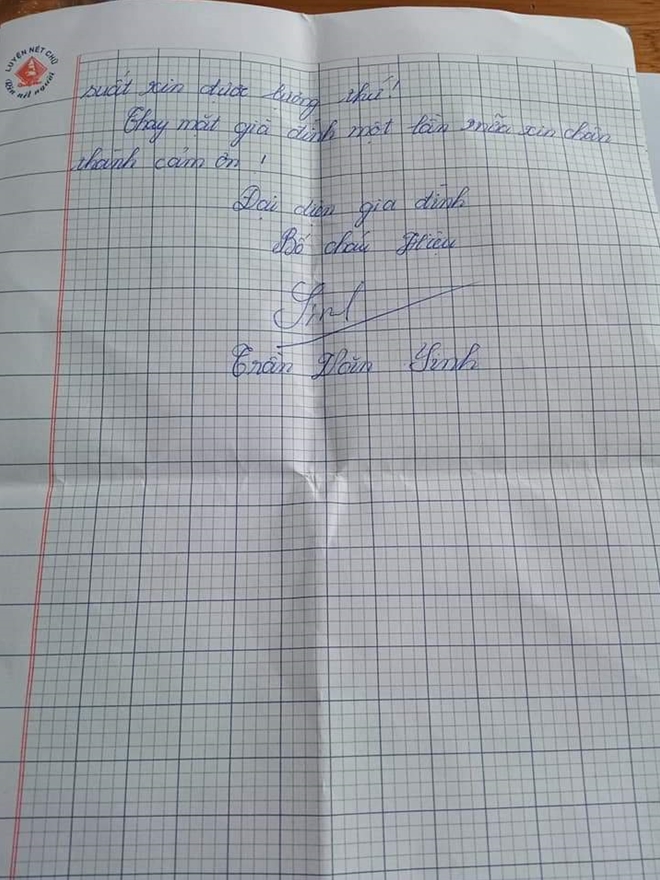 LUYỆN NÉT CHỮ
Rèn nết người
suất xin được lượng thứ!
Thay mặt gia đình một lần nữa xin chân
thành cảm ơn !
Đại diện gia đình
Bố cháu Hiệu
Sinh
Trần Văn Sinh